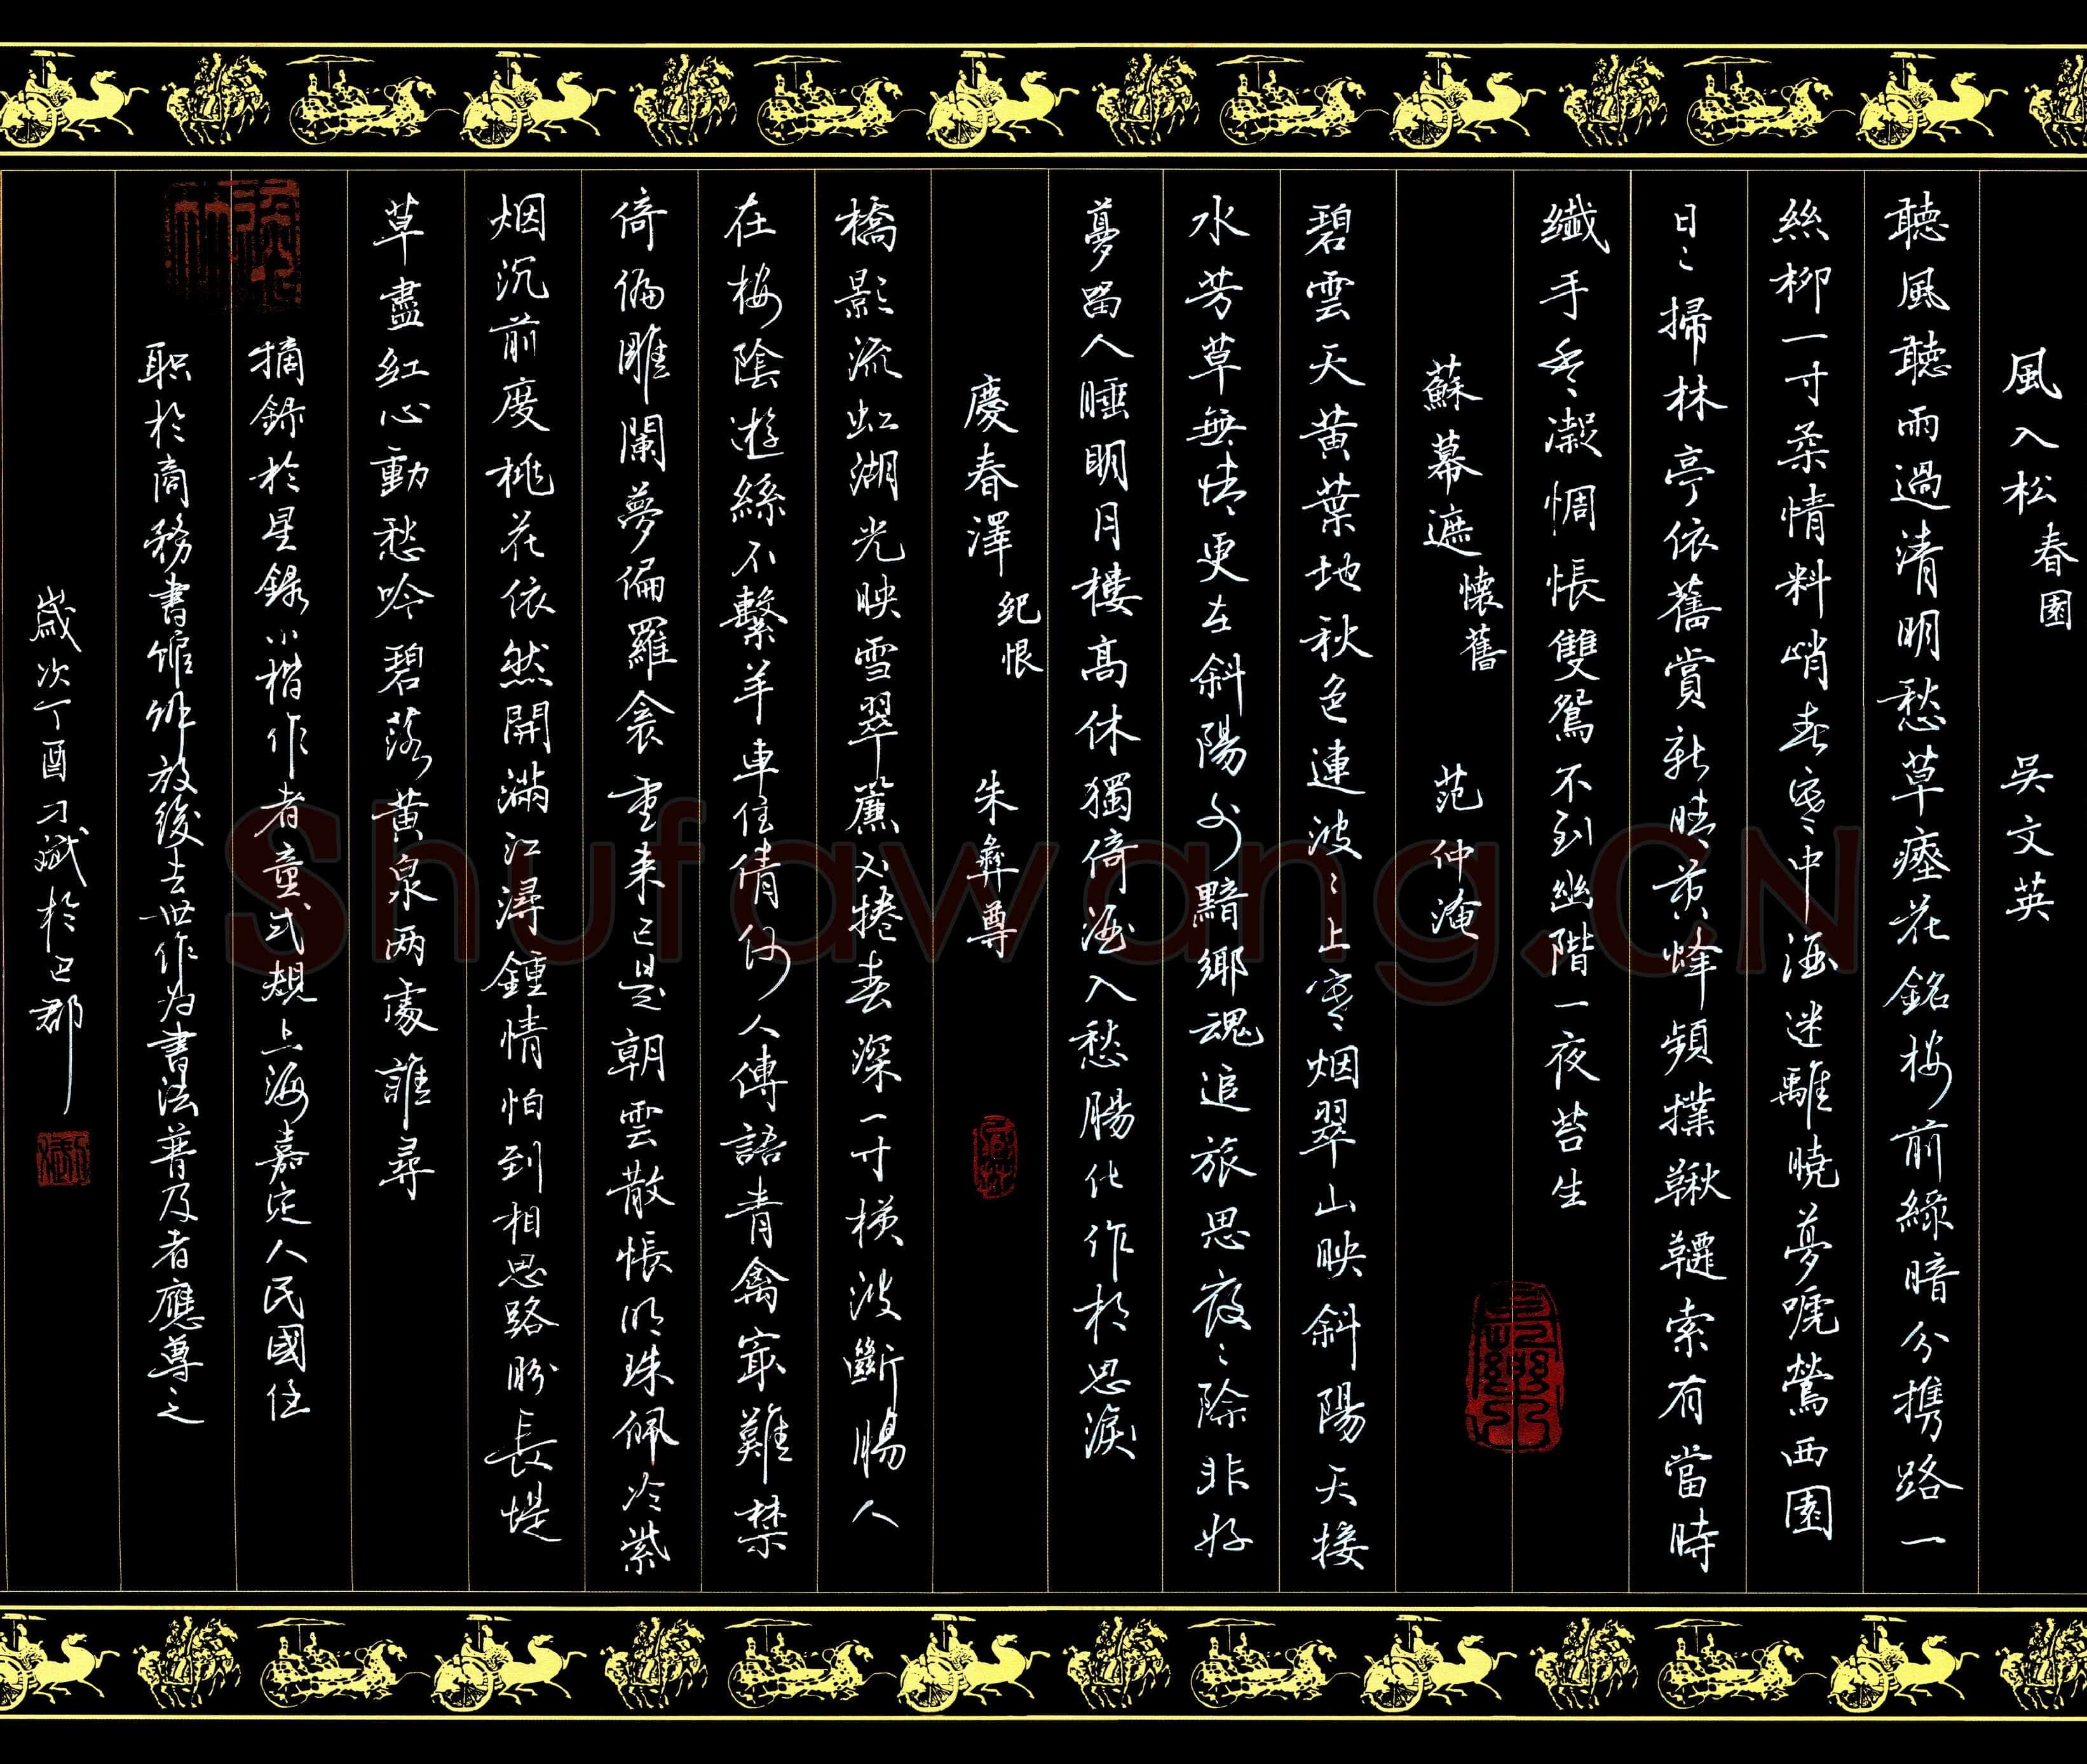 風入松 春園 吳文英
聽風聽雨過清明愁草瘞花銘樓前緑暗分攜路一
絲柳一寸柔情料峭春寒中酒迷離曉夢唬鶯西園
日〻掃林亭依舊賞新晴黄蜂頻撲鞦韆索有當時
纖手香凝惆悵雙鴛不到幽階一夜苔生
蘇幕遮 懷舊 范仲淹
碧雲天黄葉地秋色連波〻上寒烟翠山映斜陽天接
水芳草無情更在斜陽外黯鄉魂追旅思夜〻除非好
夢留人睡明月樓高休獨倚酒入愁腸化作相思淚
慶春澤 紀恨 朱彝尊
橋影流虹湖光映雪翠簾不捲春深一寸横波斷腸人
在樓陰遊絲不繫羊車住倩何人傳語青禽冣難禁
倚徧雕闌夢徧羅衾重来已是朝雲散悵明珠佩冷紫
烟沉前度桃花依然開滿江潯鍾情怕到相思路盼長堤
草盡紅心動愁吟碧落黄泉两處誰尋
摘錄於星錄小楷作者童式規上海嘉定人民國任
职於商務書馆解放後去世作为書法普及者應尊之
歲次丁酉刁斌於巴郡
Shufawang.CN